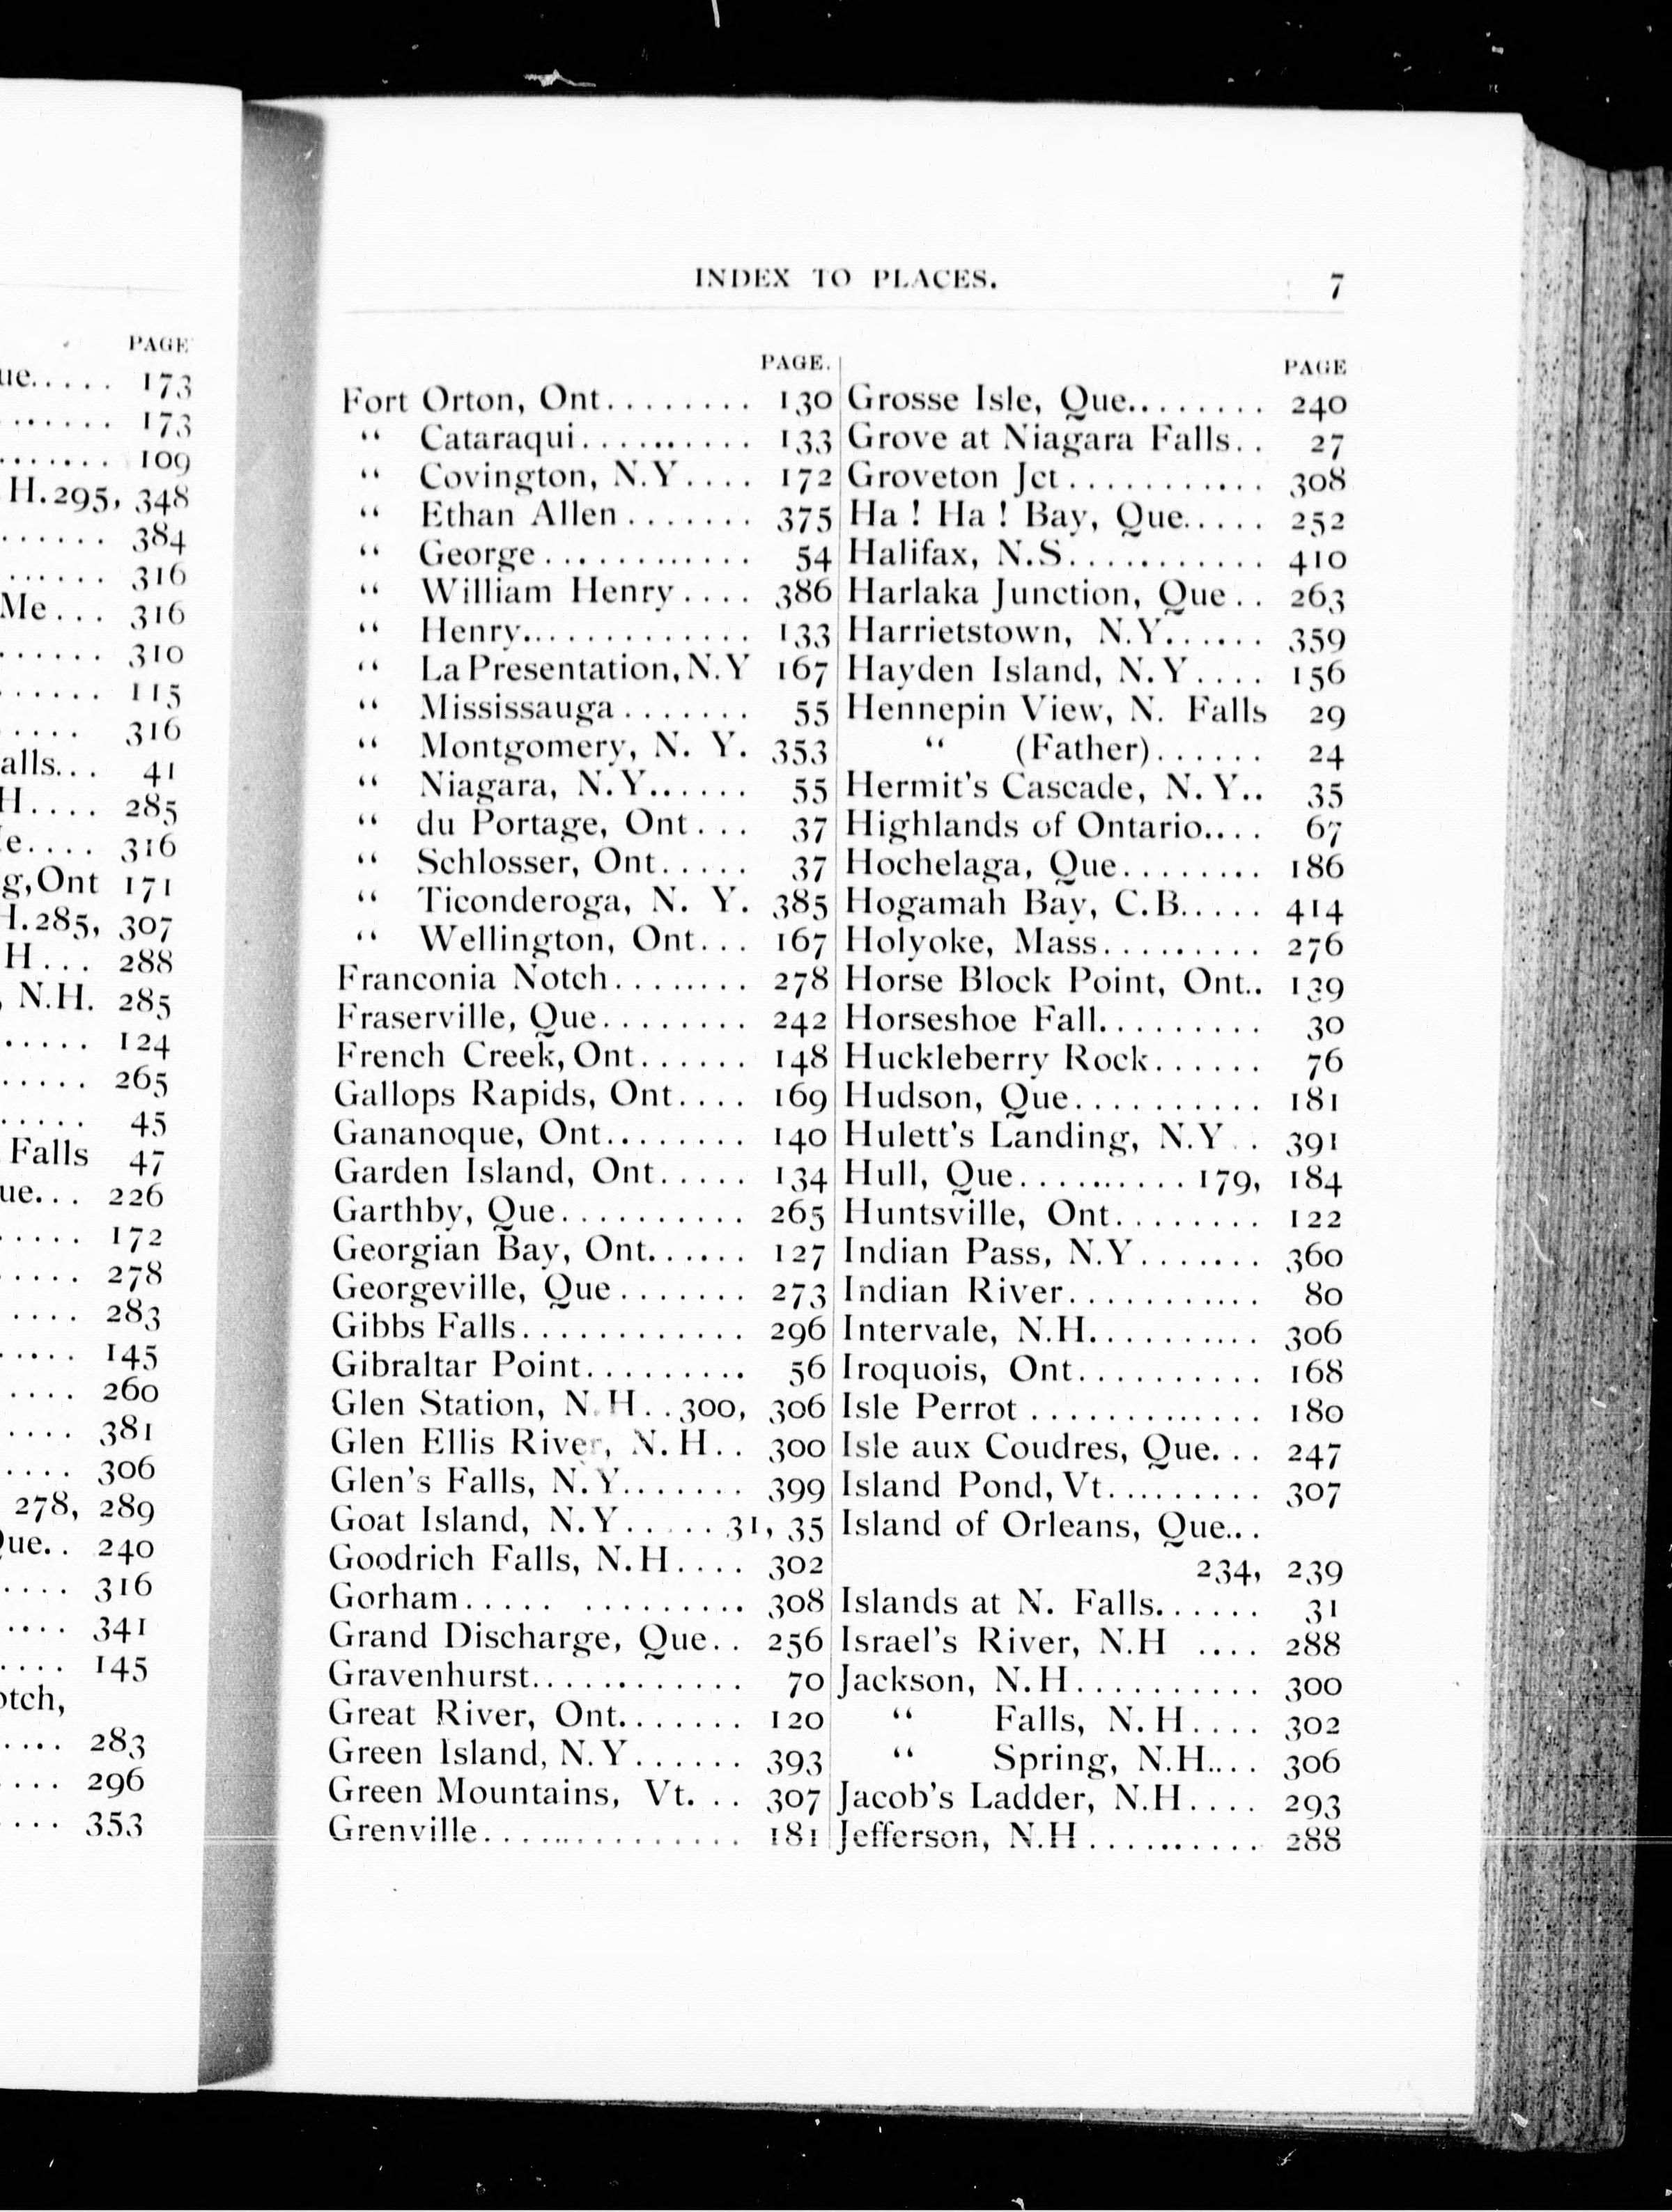 PAGE
ue..... 173
....... 173
....... 109
H.295, 348
...... 384
...... 316
Me... 316
...... 310
...... 115
..... 316
alls... 41
H.... 285
e.... 316
g,Ont 171
H.285, 307
H... 288
, N.H. 285
..... 124
..... 265
..... 45
Falls 47
ue... 226
..... 172
..... 278
.... 283
..... 145
.... 260
.... 381
.... 306
278, 289
Que.. 240
.... 316
.... 341
.... 145
otch,
.... 283
.... 296
.... 353
INDEX TO PLACES. 7
PAGE.
Fort Orton, Ont......... 130
“ Cataraqui.......... 133
“ Covington, N.Y.... 172
“ Ethan Allen....... 375
“ George............ 54
“ William Henry.... 386
“ Henry............. 133
“ La Presentation, N.Y 167
“ Mississauga....... 55
“ Montgomery, N. Y. 353
“ Niagara, N.Y...... 55
“ du Portage, Ont... 37
“ Schlosser, Ont..... 37
“ Ticonderoga, N. Y. 385
“ Wellington, Ont... 167
Franconia Notch........ 278
Fraserville, Que........ 242
French Creek, Ont...... 148
Gallops Rapids, Ont.... 169
Gananoque, Ont........ 140
Garden Island, Ont..... 134
Garthby, Que.......... 265
Georgian Bay, Ont...... 127
Georgeville, Que....... 273
Gibbs Falls............ 296
Gibraltar Point......... 56
Glen Station, N.H..300, 306
Glen Ellis River, N.H.. 300
Glen's Falls, N.Y....... 399
Goat Island, N.Y..... 31, 35
Goodrich Falls, N.H.... 302
Gorham..... ......... 308
Grand Discharge, Que.. 256
Gravenhurst............ 70
Great River, Ont....... 120
Green Island, N.Y...... 393
Green Mountains, Vt... 307
Grenville............... 181
PAGE
Grosse Isle, Que........ 240
Grove at Niagara Falls.. 27
Groveton Jct........... 308
Ha ! Ha ! Bay, Que..... 252
Halifax, N.S........... 410
Harlaka Junction, Que.. 263
Harrietstown, N.Y...... 359
Hayden Island, N.Y.... 156
Hennepin View, N. Falls 29
“ (Father)...... 24
Hermit's Cascade, N.Y.. 35
Highlands of Ontario.... 67
Hochelaga, Que........ 186
Hogamah Bay, C.B..... 414
Holyoke, Mass......... 276
Horse Block Point, Ont.. 139
Horseshoe Fall......... 30
Huckleberry Rock...... 76
Hudson, Que.......... 181
Hulett's Landing, N.Y.. 391
Hull, Que..........179, 184
Huntsville, Ont........ 122
Indian Pass, N.Y....... 360
Indian River........... 80
Intervale, N.H.......... 306
Iroquois, Ont.......... 168
Isle Perrot ............ 180
Isle aux Coudres, Que... 247
Island Pond, Vt......... 307
Island of Orleans, Que...
234, 239
Islands at N. Falls...... 31
Israel's River, N.H .... 288
Jackson, N.H.......... 300
“ Falls, N.H.... 302
“ Spring, N.H.... 306
Jacob's Ladder, N.H.... 293
Jefferson, N.H.......... 288